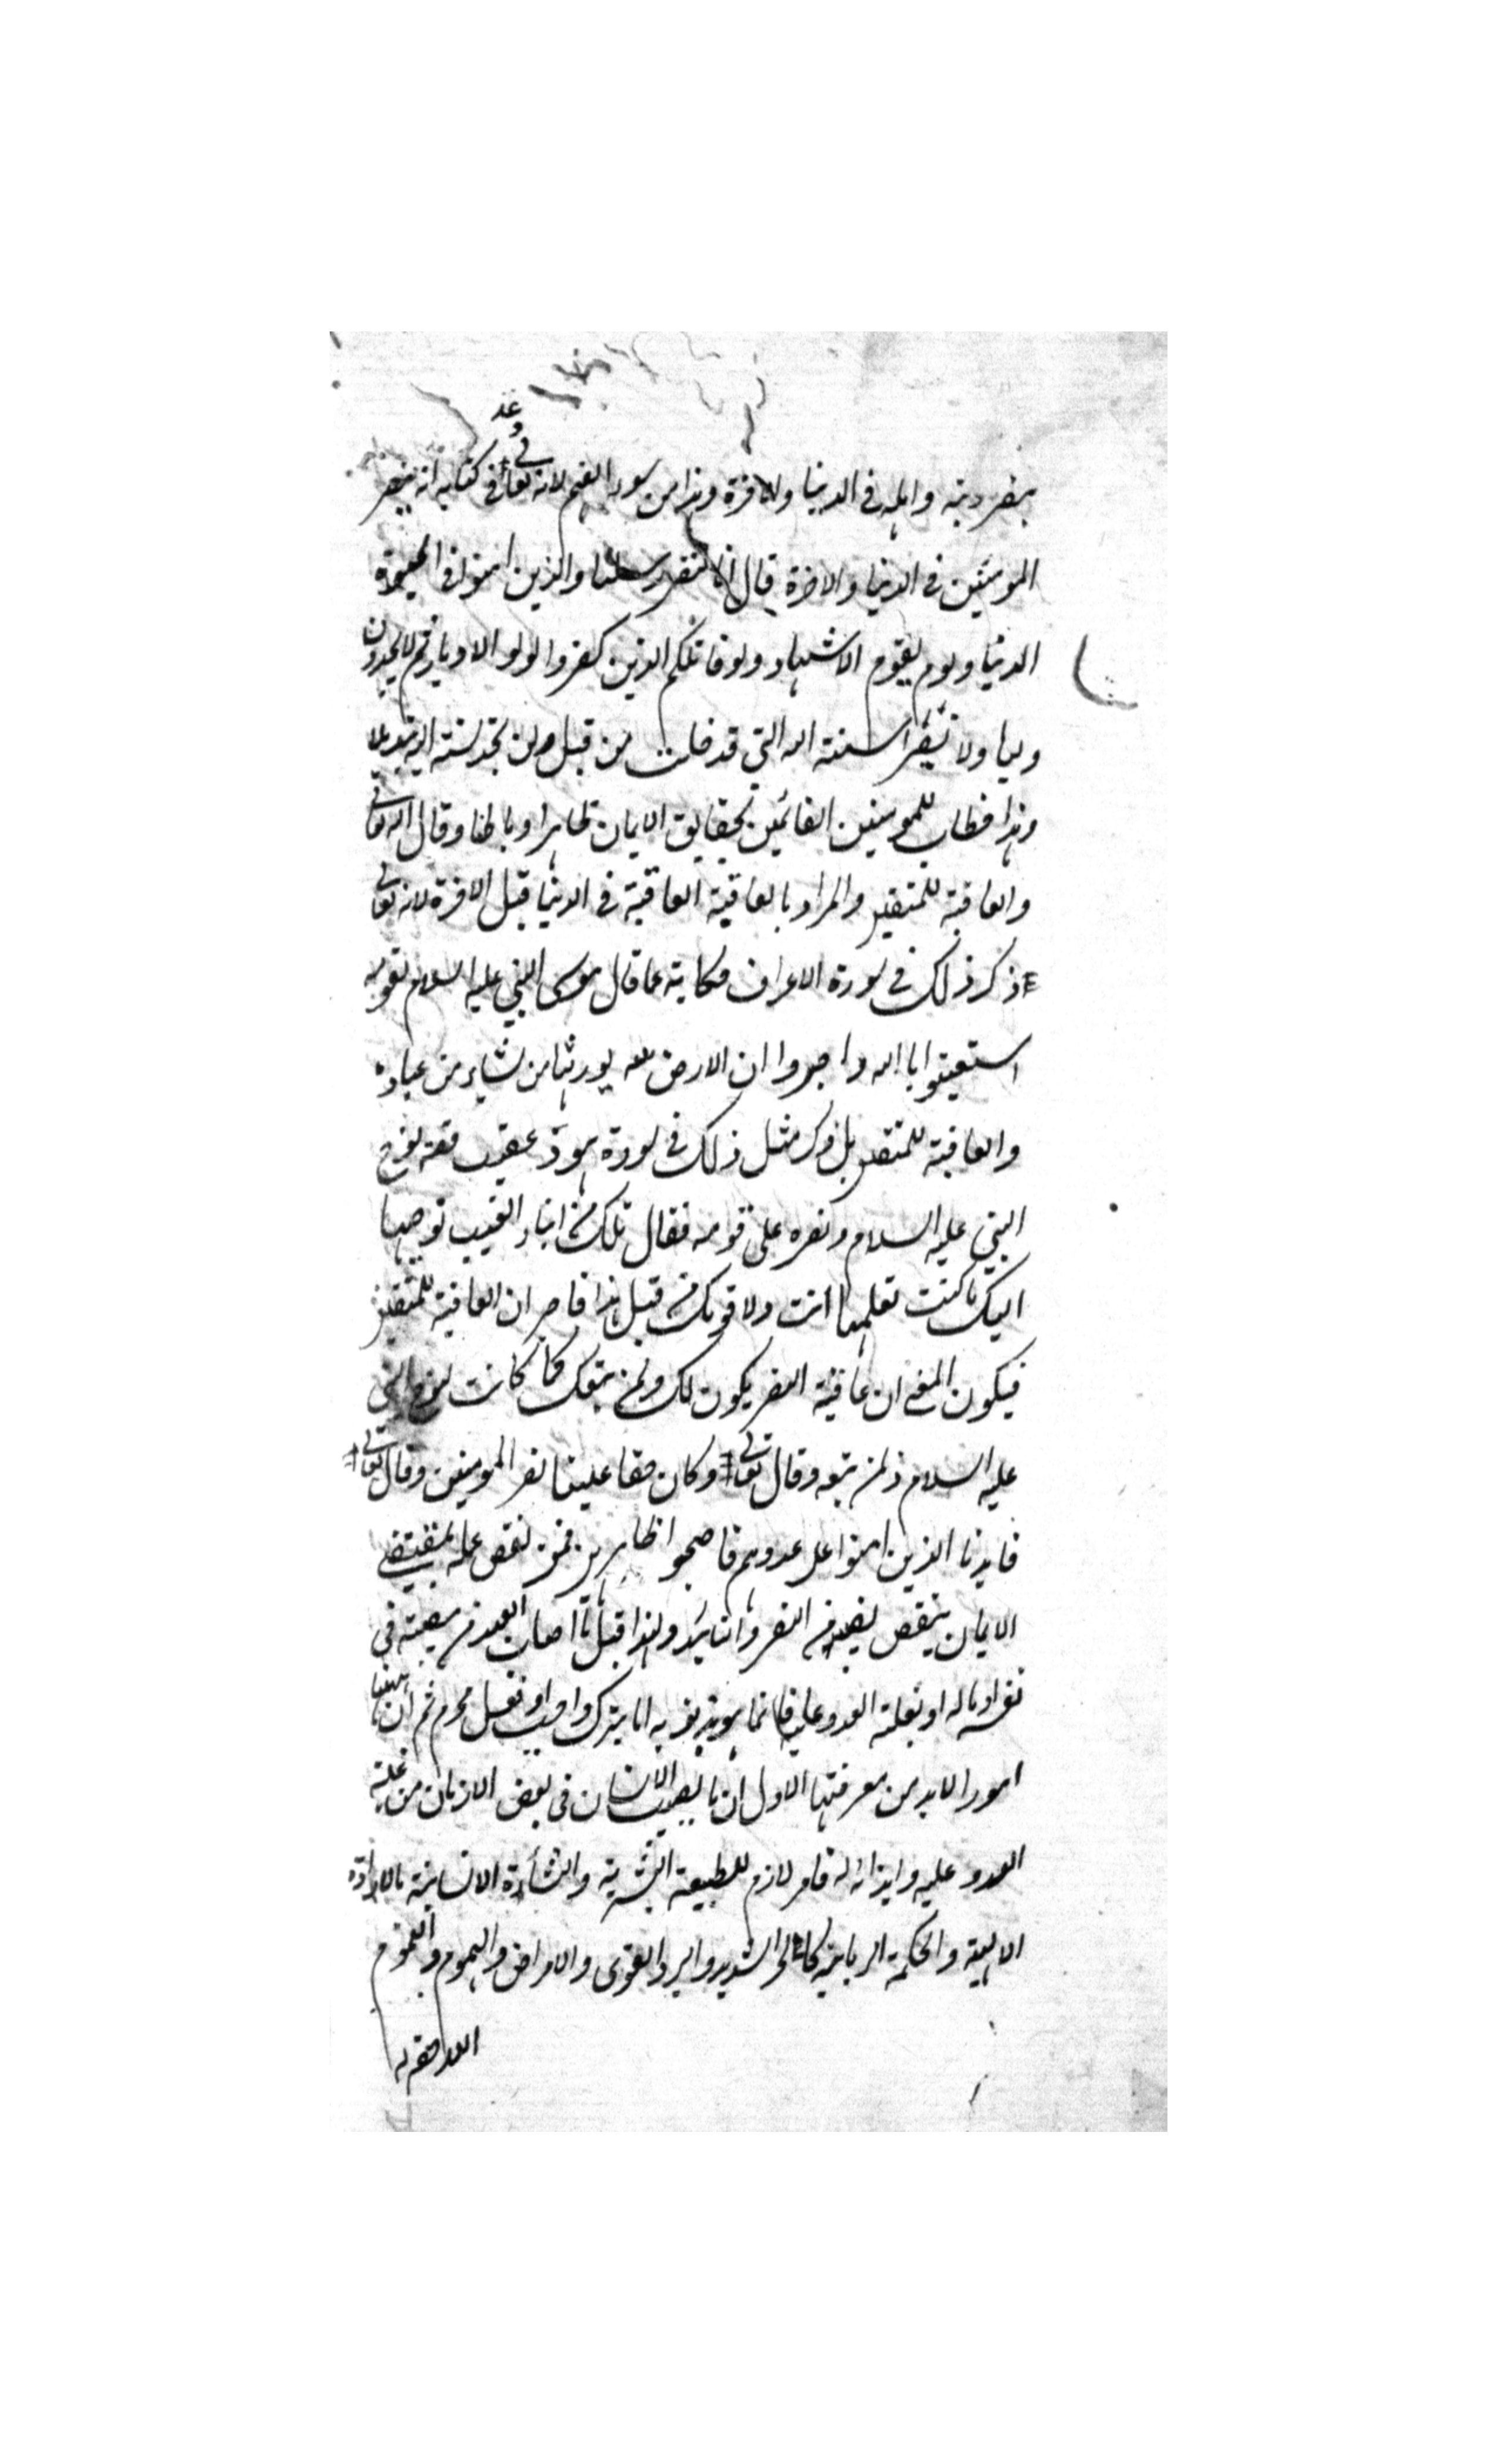 وعد
بنصر دينه واهله فى الدنيا والاخرة وهذا من سوء الفهم لانه تعالى فى كتابه انه ينصر
المومنين فى الدنيا والاخرة قال انا لننصر رسلنا والذين امنوا فى الحيوة
الدنيا ويوم يقوم الاشهاد ولو قاتلكم الذين كفروا لولوا الادبار ثم لا يجدون
وليا ولا نصيرا سنته الله التي قد خلت من قبل ولن تجد لسنته الله تبديلا
وهذا خطاب للمومنين القائمين بحقايق الايمان ظاهرا وباطنا وقال الله تعالى
والعاقبة للمتقين والمراد بالعاقبة العاقبة فى الدنيا قبل الاخرة لانه تعالى
ذكر ذلك فى سورة الاعراف حكاية عما قال موسى النبي عليه السلام لقومه
استعينوا باالله واصبروا ان الارض لله يورثها من نشاء من عباده
والعاقبة للمتقين بل ذكر مثل ذلك فى سورة هود عقيب قصه نوح
النبي عليه السلام ونصره على قومه فقال تلك من انباء الغيب نوحيها
اليك ما كنت تعلمها انت ولا قومك من قبل هذا فاصبر ان العاقبة للمتقين
فيكون المعنى ان عاقبة النصر يكون لك ولمن تبعك كما كانت لنوح النبي
عليه السلام ولمن تبعه وقال تعالى وكان حقا علينا نصر المومنين وقال تعالى
فايدنا الذين امنوا على عدوهم فاصبحوا ظاهرين فمن نقص عمله بمقتضى
الايمان ينقص نصيبه من النصر والتاييد ولهذا قيل ما اصاب العبد من مصيبته فى
نفسه او ماله او بغلبة العدو عليه فانما هو بذنوبه اما بترك واجب او فعل محرم ثم ان ههنا
امورا لابد من معرفتها الاول ان ما يصيب الانسان فى بعض الازمان من غلبة
العدو عليه وايذائه له فامر لازم للطبيعة البشرية والنشأة الانسانية بالارادة
الالهية والحكمة الربانية كالحر الشديد والبرد القوى والامراض والهموم والغموم